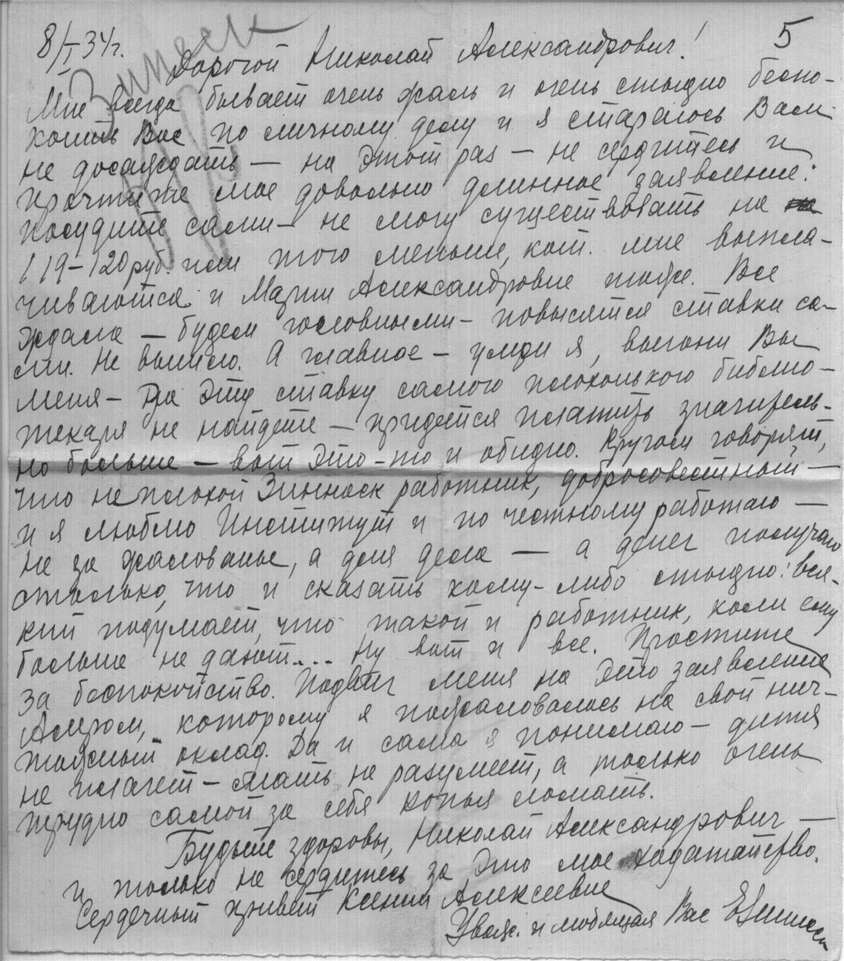 8/I 34г.
5
Зиннеск
Дорогой Николай Александрович!
Мне всегда бывает очень жаль и очень стыдно беспо-
коить Вас по личному делу и я стараюсь Вам
не досаждать — на этот раз — не сердитесь и
прочтите мое довольно длинное заявление:
посудите сами — не могу существовать на
119-120 руб. или того меньше, кот. мне выпла-
чиваются и Марии Александровне тоже. Все
ждала — будем госовными — повысятся ставки са-
ми. Не вышло. А главное — уйди я, выгони Вы
меня — на эту ставку самого плохонького библио-
текаря не найдете — придется платить значитель-
но больше — вот это-то и обидно. Кругом говорят,
что неплохой Зиннеск работник, добросовестный —
и я люблю Институт и по честному работаю —
не за жалованье, а для дела — а денег получаю
столько, что и сказать кому-либо стыдно: вся-
кий подумает, что такой и работник, коли ему
больше не дают... Ну вот и все. Простите
за беспокойство. Подвиг меня на это заявление
которому я пожаловалась на свой нич-
тожный оклад. Да и сама я понимаю — дитя
не плачет — мать не разумеет, а только очень
трудно самой за себя копья ломать.
Будьте здоровы, Николай Александрович —
и только не сердитесь за это мое ходатайство.
Сердечный привет Ксении Алексеевне
Уваж. и любящая Вас